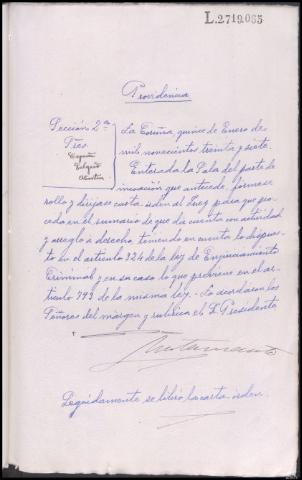 L.2719.065
Providencia
Sección 2ª
Tres
La Coruña, quince de Enero de
mil novecientos treinta y siete.
Enterada la Sala del parte de
incoación que antecede, fórmese
rollo y dirijase carta orden al Juez para que pro
ceda en el sumario de que da cuenta con actividad
y arreglo a derecho teniendo en cuenta lo dispues
to en el artículo 324 de la ley de Enjuiciamiento
Criminal y en su caso lo que previene en el ar-
tículo 793 de la misma ley.- Lo acordaron los
Señores del margen y rubrica el S. Presidente
Seguidamente se libró la carta orden.